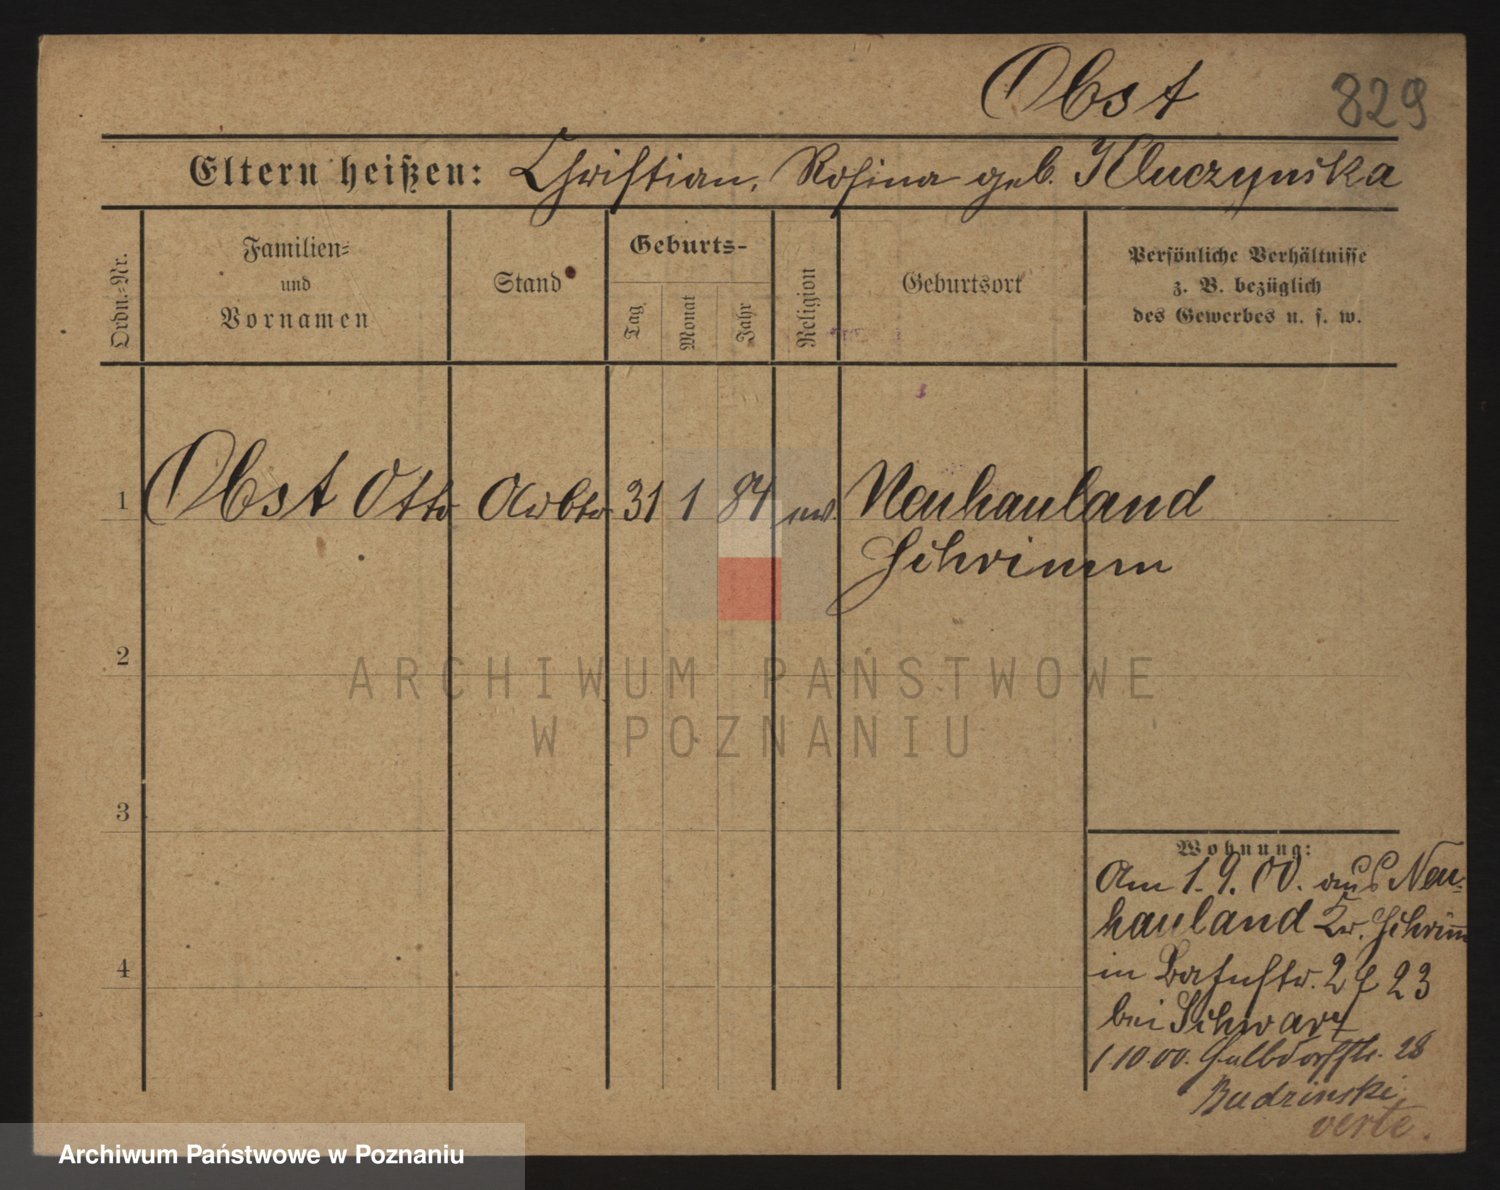 Obst 829
Eltern heißen: Christian, Rosina geb. Kluczynska
Ordn.-Nr.
Familien- und Vornamen
Stand
Geburts-
Tag
Monat
Jahr
Religion
Geburtsort
Persönliche Verhältnisse
z. B. bezüglich
des Gewerbes u. s. w.
1 Obst Otto Arbtr 31 1 84 ev. Neuhauland
Schrimm
2
3
4
Wohnung:
Am 1.9.00. aus Neu-
hauland Kr. Schrimm
in 23
bei Schwarz
1 10 00. Halbdorfstr. 28
Budzinski
verte.
ARCHIWUM PAŃSTWOWE
W POZNANIU
Archiwum Państwowe w Poznaniu